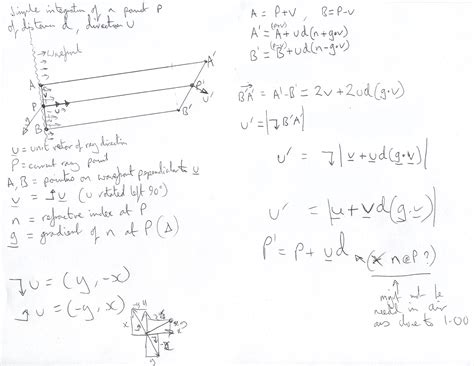 Simple integration of a point P
of distance d, direction u
wavefront
A
P
B
A'
P'
B'
u'
g
u = unit vector of ray direction
P = current ray point
A, B = points on wavefront perpendicular to u
v = ⤴u (u rotated left 90°)
n = refractive index at P
g = gradient of n at P (Δ)
⤵u = (y, -x)
⤴u = (-y, x)
A = P+v, B = P-v
A' = (P+v) A + ud(n+g•v)
B' = (P-v) B + ud(n-g•v)
B'A' = A'-B' = 2v + 2ud(g•v)
u' = |⤵B'A'|
u' = ⤵|v + ud(g•v)|
u' = |u + vd(g•v)|
P' = P + ud (* n@P?)
might not be
need in air
as close to 1.00